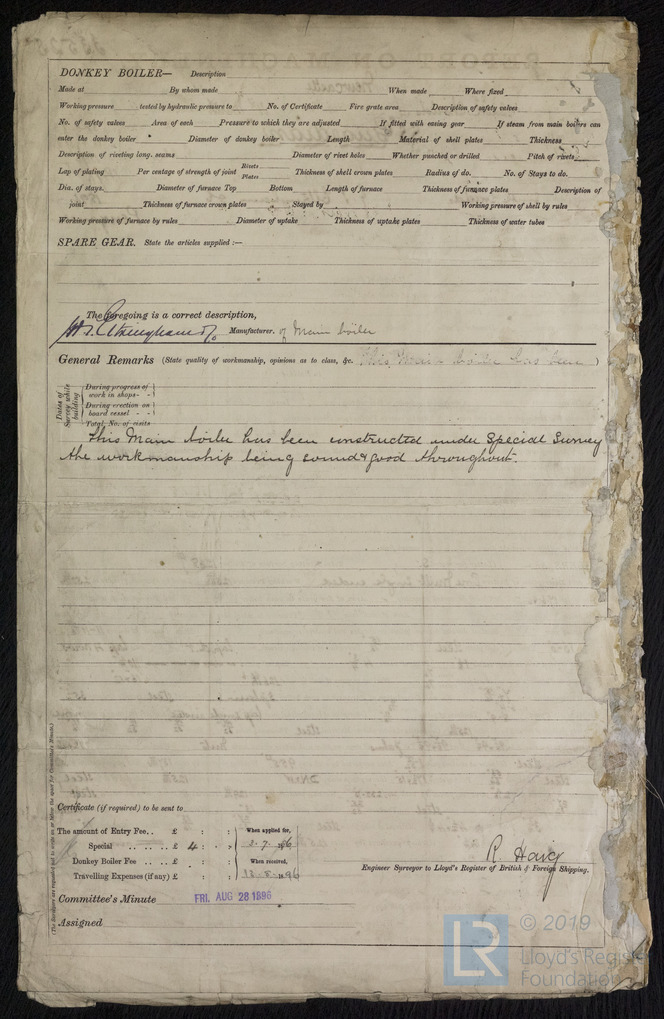 DONKEY BOILER— Description
Made at By whom made When made Where fixed
Working pressure tested by hydraulic pressure to No. of Certificate Fire grate area Description of safety valves
No. of safety valves Area of each Pressure to which they are adjusted If fitted with easing gear If steam from main boilers can
enter the donkey boiler Diameter of donkey boiler Length Material of shell plates Thickness
Description of riveting long. seams Diameter of rivet holes Whether punched or drilled Pitch of rivets
Lap of plating Per centage of strength of joint Rivets Plates Thickness of shell crown plates Radius of do. No. of Stays to do.
Dia. of stays. Diameter of furnace Top Bottom Length of furnace Thickness of furnace plates Description of
joint Thickness of furnace crown plates Stayed by Working pressure of shell by rules
Working pressure of furnace by rules Diameter of uptake Thickness of uptake plates Thickness of water tubes
SPARE GEAR. State the articles supplied :—
The foregoing is a correct description,
Manufacturer. of Main boiler
General Remarks (State quality of workmanship, opinions as to class, &c. This Main boiler has been )
Dates of Survey while building
During progress of work in shops - -
During erection on board vessel - -
Total No. of visits
This Main boiler has been constructed under Special Survey
the workmanship being sound & good throughout.
(The Surveyors are requested not to write on or below the space for Committee's Minute.)
Certificate (if required) to be sent to
The amount of Entry Fee.. £ : : When applied for,
Special .. .. .. £ 4 : : 2.7.96
Donkey Boiler Fee .. .. .. £ : : When received,
Travelling Expenses (if any) £ : : 96
R. Haig
Engineer Surveyor to Lloyd's Register of British & Foreign Shipping.
Committee's Minute FRI. AUG 28 1896
Assigned
© 2019
LR Lloyd's Register
Foundation